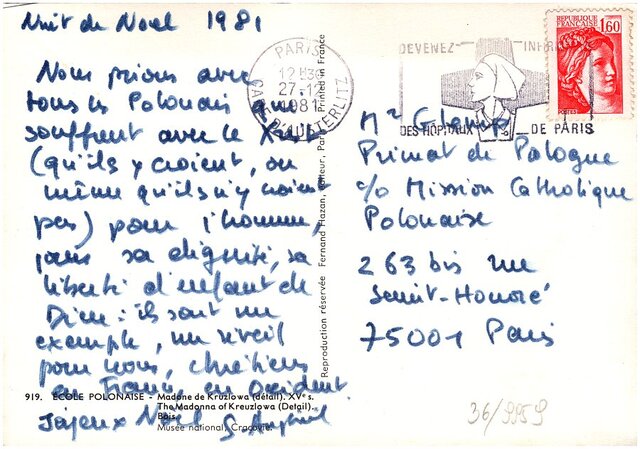 Nuit de Noel 1981
Nous prions avec
tous les Polonais qui
souffrent avec le Xt
(qu'ils y croient, ou
même qu'ils n'y croient
pas) pour l'homme,
pour sa dignité, sa
liberté d'enfant de
Dieu : ils sont un
exemple, un réveil
pour nous, chrétiens
en France, en Occident
Joyeux Noël
919. ÉCOLE POLONAISE - Madone de Kruzlowa (détail). XVe s.
The Madonna of Kreuzlowa (Detail).-
Bois.
Musée national, Cracovie.
Reproduction réservée Fernand Hazan, Éditeur, Paris Printed in France
PARIS
12 H30
27-12
1981
GARE D'AUSTERLITZ
DEVENEZ
DES HÔPITAUX DE PARIS
REPUBLIQUE
FRANÇAISE
1,60
POSTES
Mgr Glemp
Primat de Pologne
c/o Mission Catholique
Polonaise
263 bis rue
Saint-Honoré
75001 Paris
36/9959